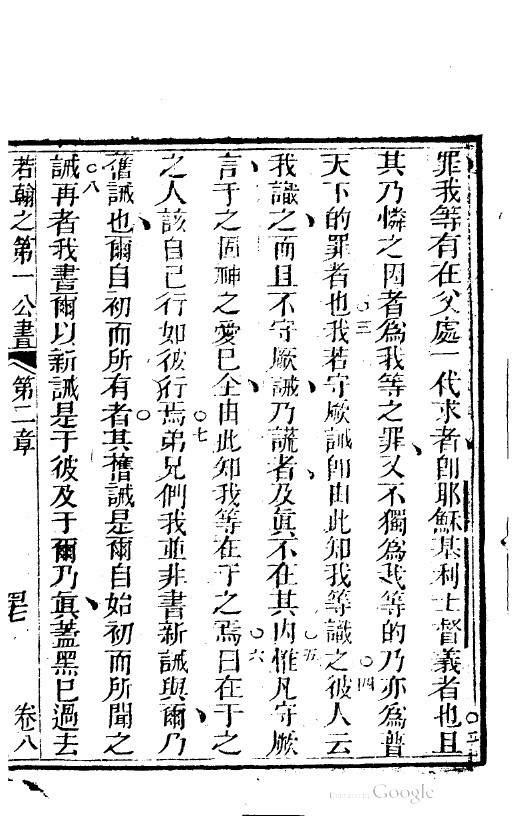 罪我等有在父處一代求者卽耶穌基利士督義者也且○二
其乃憐之因者爲我等之罪又不獨爲我等的乃亦爲普
天下的罪者也○三我若守厥誡卽由此知我等識之○四彼人云
我識之而且不守厥誡乃謊者及眞不在其內○五惟凡守厥
言于之固神之愛已全由此知我等在于之焉○六曰在于之
之人該自己行如彼行焉○七弟兄們我並非書新誡與爾乃
舊誡也爾自初而所有者○其舊誡是爾自始初而所聞之
誡○八再者我書爾以新誡是于彼及于爾乃眞蓋黑已過去
若翰之第一公書 第二章 卷八
Digitized by Google